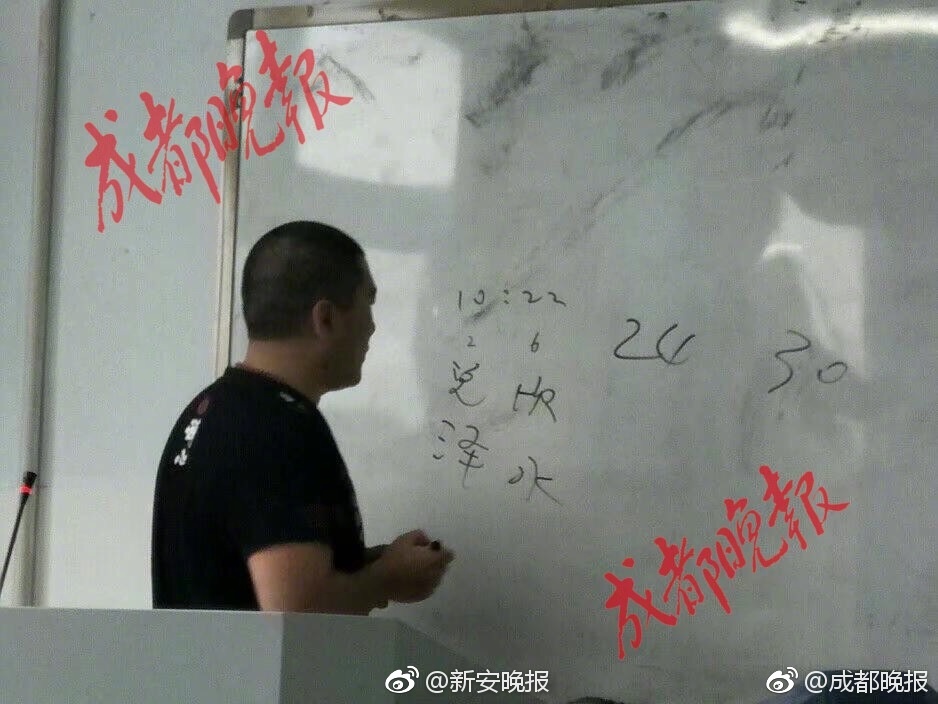 成都晚报
10:22
2 6
24 30
兑 坎
泽 水
成都晚报
@新安晚报 @成都晚报